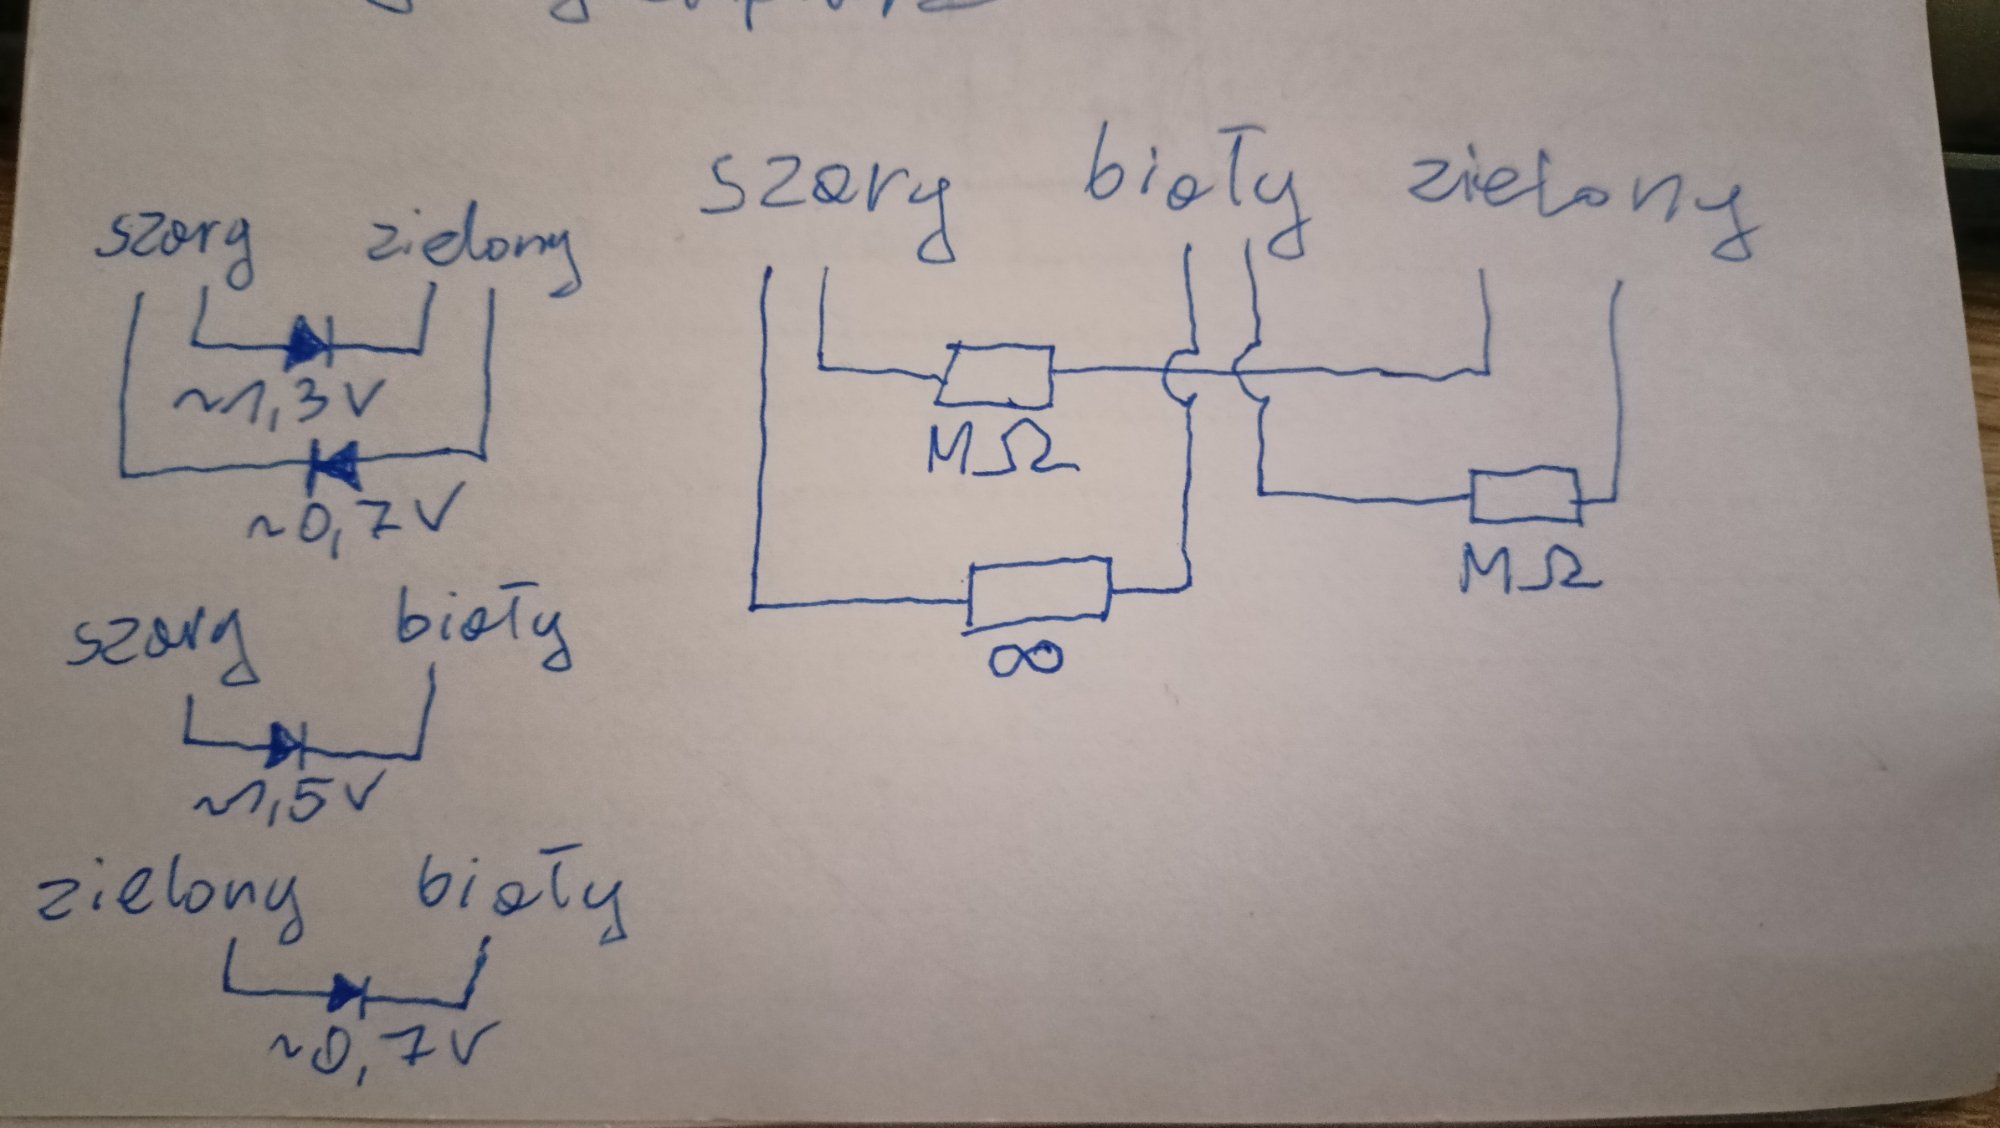 szary zielony
~1,3V
~0,7V
szary biały
~1,5V
zielony biały
~0,7V
szary biały zielony
MΩ
MΩ
∞